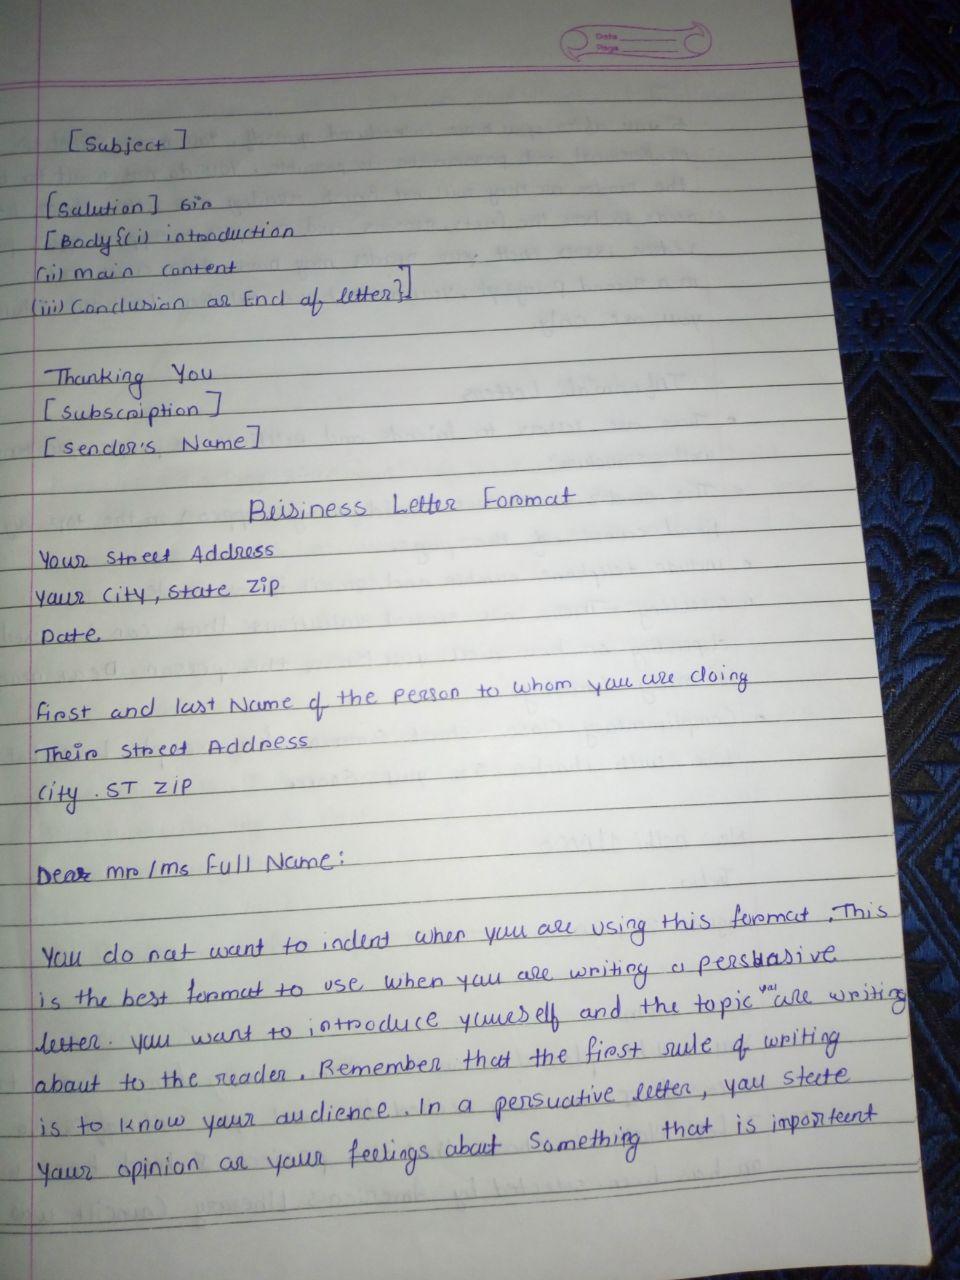 Date
Page
[Subject]
[Salution] Sir
[Body{(i) introduction
(ii) main content
(iii) Conclusion or End of letter}]
Thanking You
[Subscription]
[Sender's Name]
Beisiness Letter Format
Your Street Address
Your City, State Zip
Date
First and last Name of the person to whom you are doing
Their Street Address
City. ST ZIP
Dear mr/ms Full Name:
You do not want to indent when you are using this format. This
is the best format to use when you are writing a persuasive
letter. You want to introduce yourself and the topic you are writing
about to the reader. Remember that the first rule of writing
is to know your audience. In a persuative letter, you state
your opinion or your feelings about Something that is important